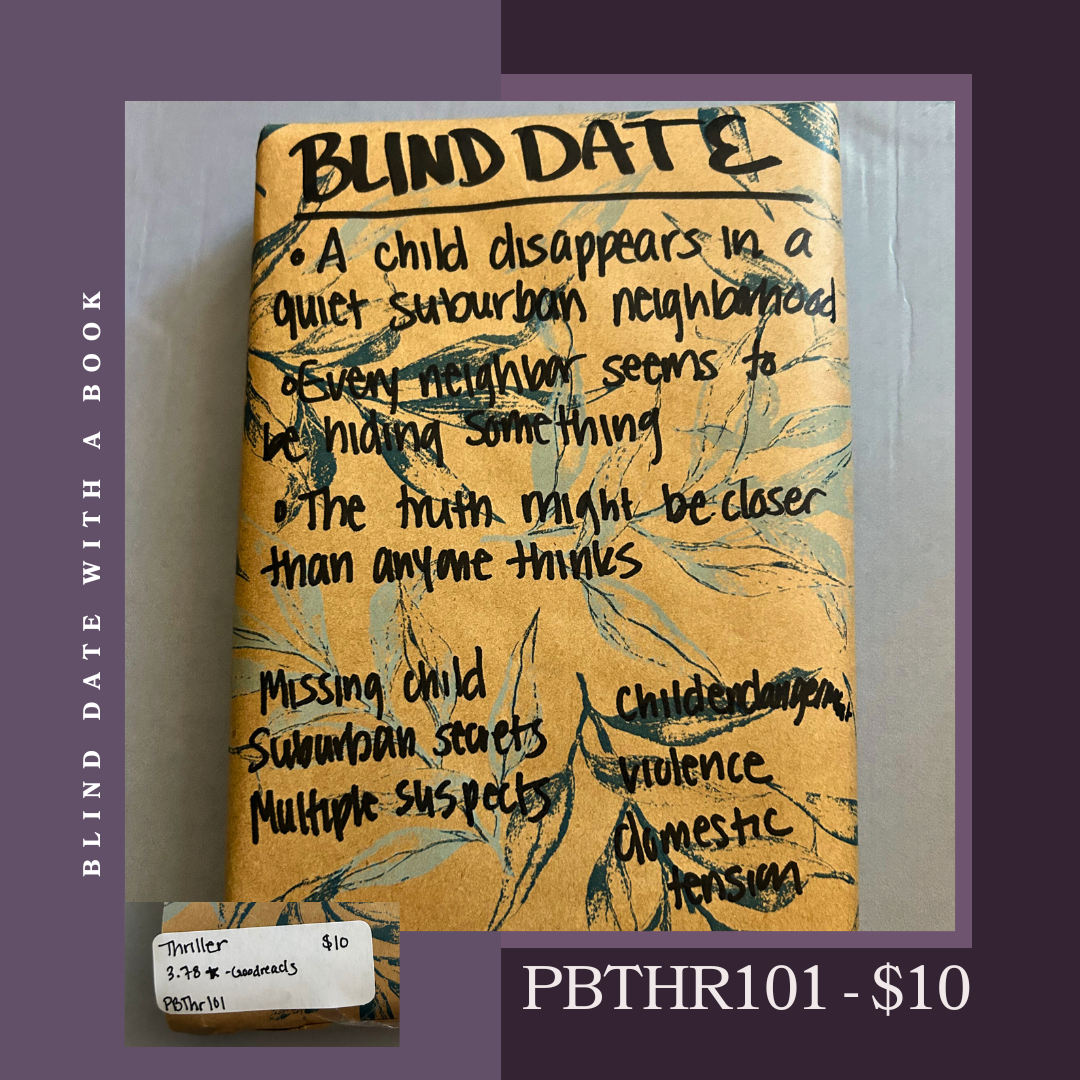 BLIND DATE WITH A BOOK
BLIND DATE
• A child disappears in a
quiet suburban neighborhood
• Every neighbor seems to
be hiding something
• The truth might be closer
than anyone thinks
Missing child
Suburban secrets
Multiple suspects
Child endangerment
violence
domestic
tension
Thriller $10
3.78 ★ - Goodreads
PBThr101
PBTHR101 - $10